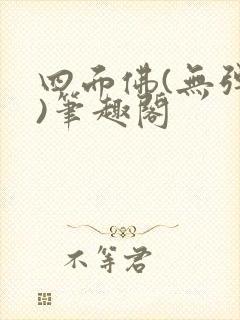 四面佛(無彈
)筆趣閣
不等君